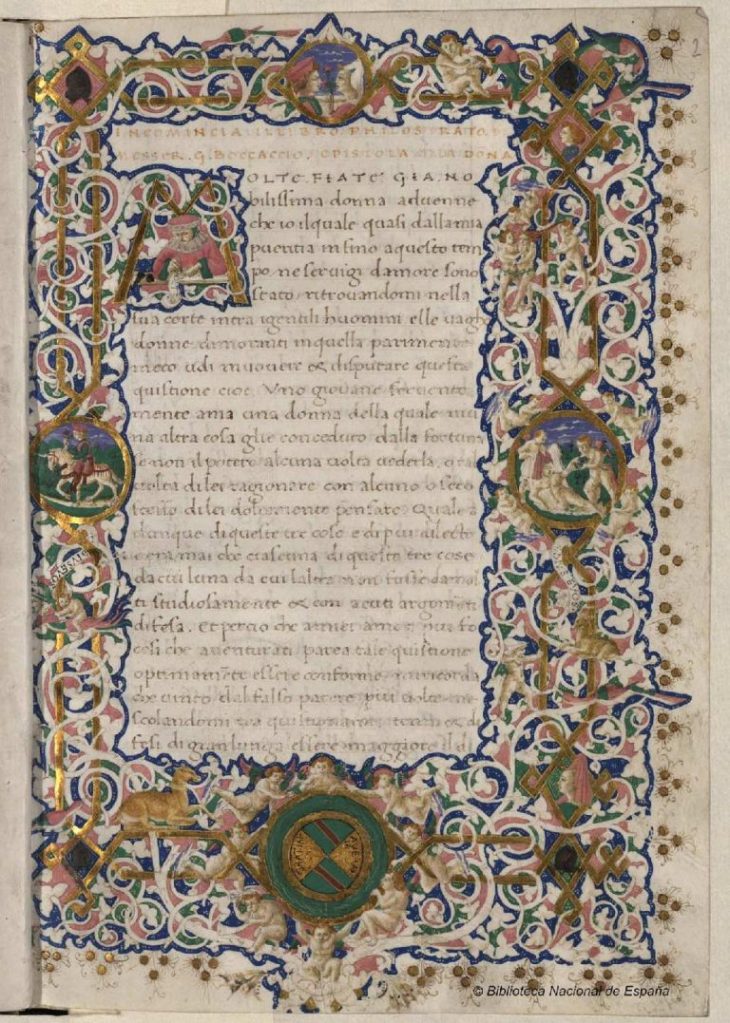 2
INCOMINCIA IL LIBRO PHILOSTRATO D
MESSER. G. BOCCACCIO, EPISTOLA ALLA DONA
MOLTE FIATE GIA NO
bilissima donna advenne
che io il quale quasi dalla mia
pueritia in fino a questo tem
po ne servigi damore sono
stato ritrovandomi nella
sua corte intra i gentili huomini elle vaghe
donne dimoranti in quella parimente
meco udi muovere & disputare questa
quistione cioe. Uno giovane fervente
mente ama una donna della quale niu
na altra cosa glie conceduto dalla fortuna
se non il potere alcuna volta vederla, o tal
volta di lei ragionare con alcuno o seco
di lei dolcemente pensare. Quale a
dunque di queste tre cose e di piu dilecto
mai che ciascuna di queste tre cose
da cui luna da cui laltra non fosse da mol
ti studiosamente & con acuti argomen
difesa. Et percio che a miei amori piu fo
cosi che aventurati parea tale quistione
optimamente essere conforme mi ricorda
che vinto dal falso parere piu volte me
scolandomi tra quistionanti tenni & di
fesi di gran lunga essere maggiore il di
© Biblioteca Nacional de España